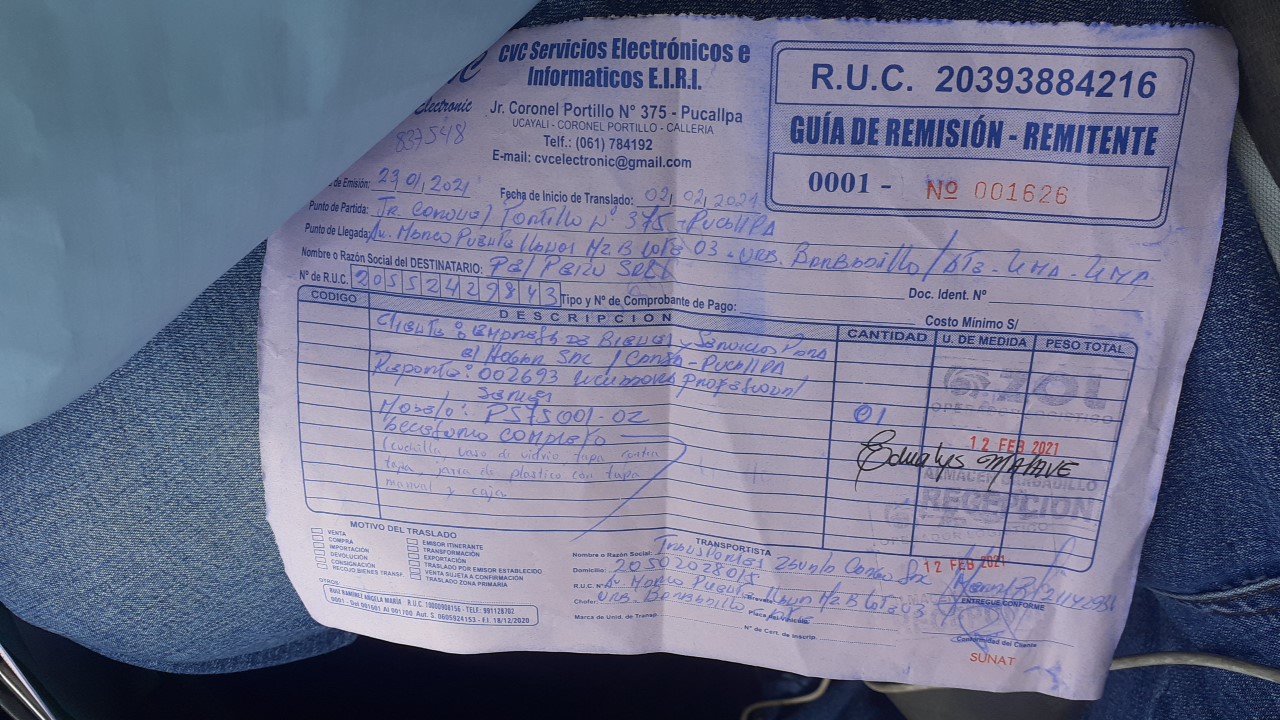 CVC Servicios Electrónicos e
Informaticos E.I.R.L.
electronic
837548
Jr. Coronel Portillo N° 375 - Pucallpa
UCAYALI - CORONEL PORTILLO - CALLERIA
Telf.: (061) 784192
E-mail: cvcelectronic@gmail.com
R.U.C. 20393884216
GUÍA DE REMISIÓN - REMITENTE
0001 - Nº 001626
de Emisión: 29/01/2021 Fecha de Inicio de Translado: 02/02/2021
Punto de Partida: Jr. Coronel Portillo N° 375 - Pucallpa
Punto de Llegada: Av. Manco Mz. B Lote 03 - Urb. Barbadillo / Ate - Lima - Lima
Nombre o Razón Social del DESTINATARIO: Perú SRL
Doc. Ident. N°
N° de R.U.C. 20552429843 Tipo y N° de Comprobante de Pago:
Costo Mínimo S/
CODIGO DESCRIPCION CANTIDAD U. DE MEDIDA PESO TOTAL
Cliente: Empresa de Bienes y Servicios para
el Hogar SAC / - Pucallpa
002693 Licuadora profesional
Modelo: 01
completo
Cuchilla, vaso de vidrio tapa contra
tapa, jarra de plastico con tapa
manual y caja
ZOL
OPERADOR LOGISTICO
12 FEB 2021
Edualys MALAVE
ALMACEN BARBADILLO
RECEPCION
MOTIVO DEL TRASLADO
VENTA
COMPRA
IMPORTACIÓN
DEVOLUCIÓN
CONSIGNACIÓN
RECOJO BIENES TRANSF.
EMISOR ITINERANTE
TRANSFORMACIÓN
EXPORTACIÓN
TRASLADO POR EMISOR ESTABLECIDO
VENTA SUJETA A CONFIRMACIÓN
TRASLADO ZONA PRIMARIA
OTROS:
RUIZ RAMIREZ ANGELA MARÍA R.U.C. 10000908156 - TELF.: 991128702
0001 - Del 001501 Al 001700 Aut. S. 0605924153 - F.I. 18/12/2020
TRANSPORTISTA
Nombre o Razón Social: Transportes Cargo SAC
Domicilio: 20502028015
R.U.C. N° Av. Manco Mz. B Lote 03
Chofer: Urb. Barbadillo Ate
Marca de Unid. de Transp.
Placa de Vehículo:
N° de Cert. de Inscrip.
12 FEB 2021
ENTREGUE CONFORME
Conformidad del Cliente
SUNAT